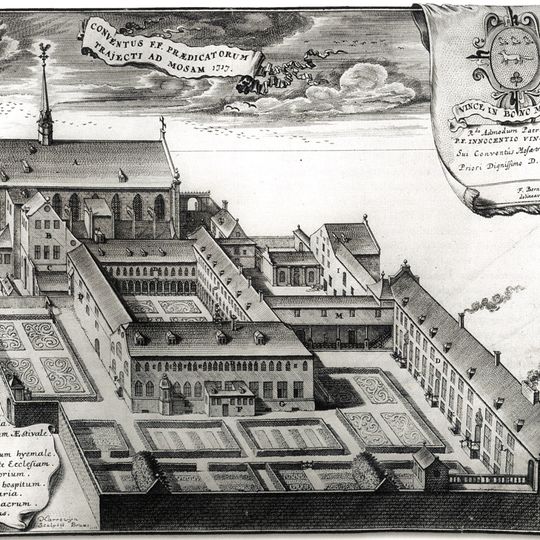 CONVENTUS F.F. PRÆDICATORUM
TRAJECTI AD MOSAM 1717.
VINCE IN BONO
Rdo Admodum Patr
P.F. INNOCENTIO VIN
Sui Conventûs Mosætr
Priori Dignissimo D.
F. Bern
delineav
B
M
D
F
G
a
m Æstivale.
um hyemale.
te Ecclesiam.
orium.
hospitum.
aria.
acrum.
us.
Harrewijn
Sculpsit Brux: